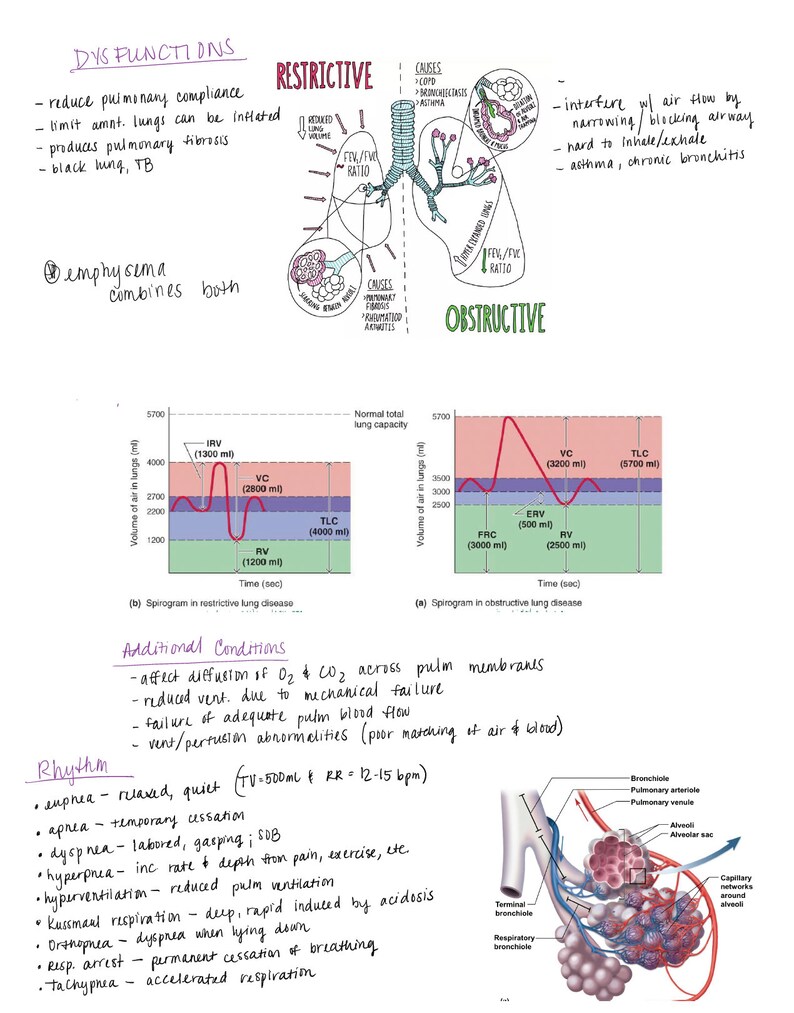 DYSFUNCTIONS
- reduce pulmonary compliance
- limit amnt. lungs can be inflated
- produces pulmonary fibrosis
- black lung, TB
emphysema
combines both
RESTRICTIVE
REDUCED
LUNG
VOLUME
FEV₁/FVC
RATIO
SCARRING BETWEEN ALVEOLI
CAUSES
>PULMONARY
FIBROSIS
>RHEUMATIOD
ARTHRITIS
CAUSES
>COPD
>BRONCHIECTASIS
>ASTHMA
INFLAMED BRONCHI & MUCUS
DILATION OF ALVEOLI & AIR TRAPPING
HYPER EXPANDED LUNGS
FEV₁/FVC
RATIO
OBSTRUCTIVE
-
- interfere w/ air flow by
narrowing/blocking airway
- hard to inhale/exhale
- asthma, chronic bronchitis
5700
Normal total
lung capacity
IRV
(1300 ml)
4000
VC
(2800 ml)
2700
2200
TLC
(4000 ml)
1200
RV
(1200 ml)
Volume of air in lungs (ml)
Time (sec)
(b) Spirogram in restrictive lung disease
5700
VC
(3200 ml)
TLC
(5700 ml)
3500
3000
2500
ERV
(500 ml)
FRC
(3000 ml)
RV
(2500 ml)
Volume of air in lungs (ml)
Time (sec)
(a) Spirogram in obstructive lung disease
Additional Conditions
- affect diffusion of O₂ & CO₂ across pulm membranes
- reduced vent. due to mechanical failure
- failure of adequate pulm blood flow
- vent/perfusion abnormalities (poor matching of air & blood)
Rhythm
• eupnea – relaxed, quiet (TV=500mL & RR = 12-15 bpm)
• apnea – temporary cessation
• dyspnea – labored, gasping; SOB
• hyperpnea – inc rate & depth from pain, exercise, etc.
• hyperventilation – reduced pulm ventilation
• Kussmaul respiration – deep, rapid induced by acidosis
• Orthopnea – dyspnea when lying down
• Resp. arrest – permanent cessation of breathing
• tachypnea – accelerated respiration
Bronchiole
Pulmonary arteriole
Pulmonary venule
Alveoli
Alveolar sac
Capillary
networks
around
alveoli
Terminal
bronchiole
Respiratory
bronchiole